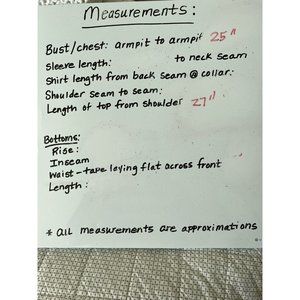 Measurements:
Bust/chest: armpit to armpit 25"
Sleeve length: to neck seam
Shirt length from back seam @ collar:
Shoulder seam to seam:
Length of top from shoulder 27"
Bottoms:
Rise:
Inseam
Waist - tape laying flat across front
Length:
* all measurements are approximations